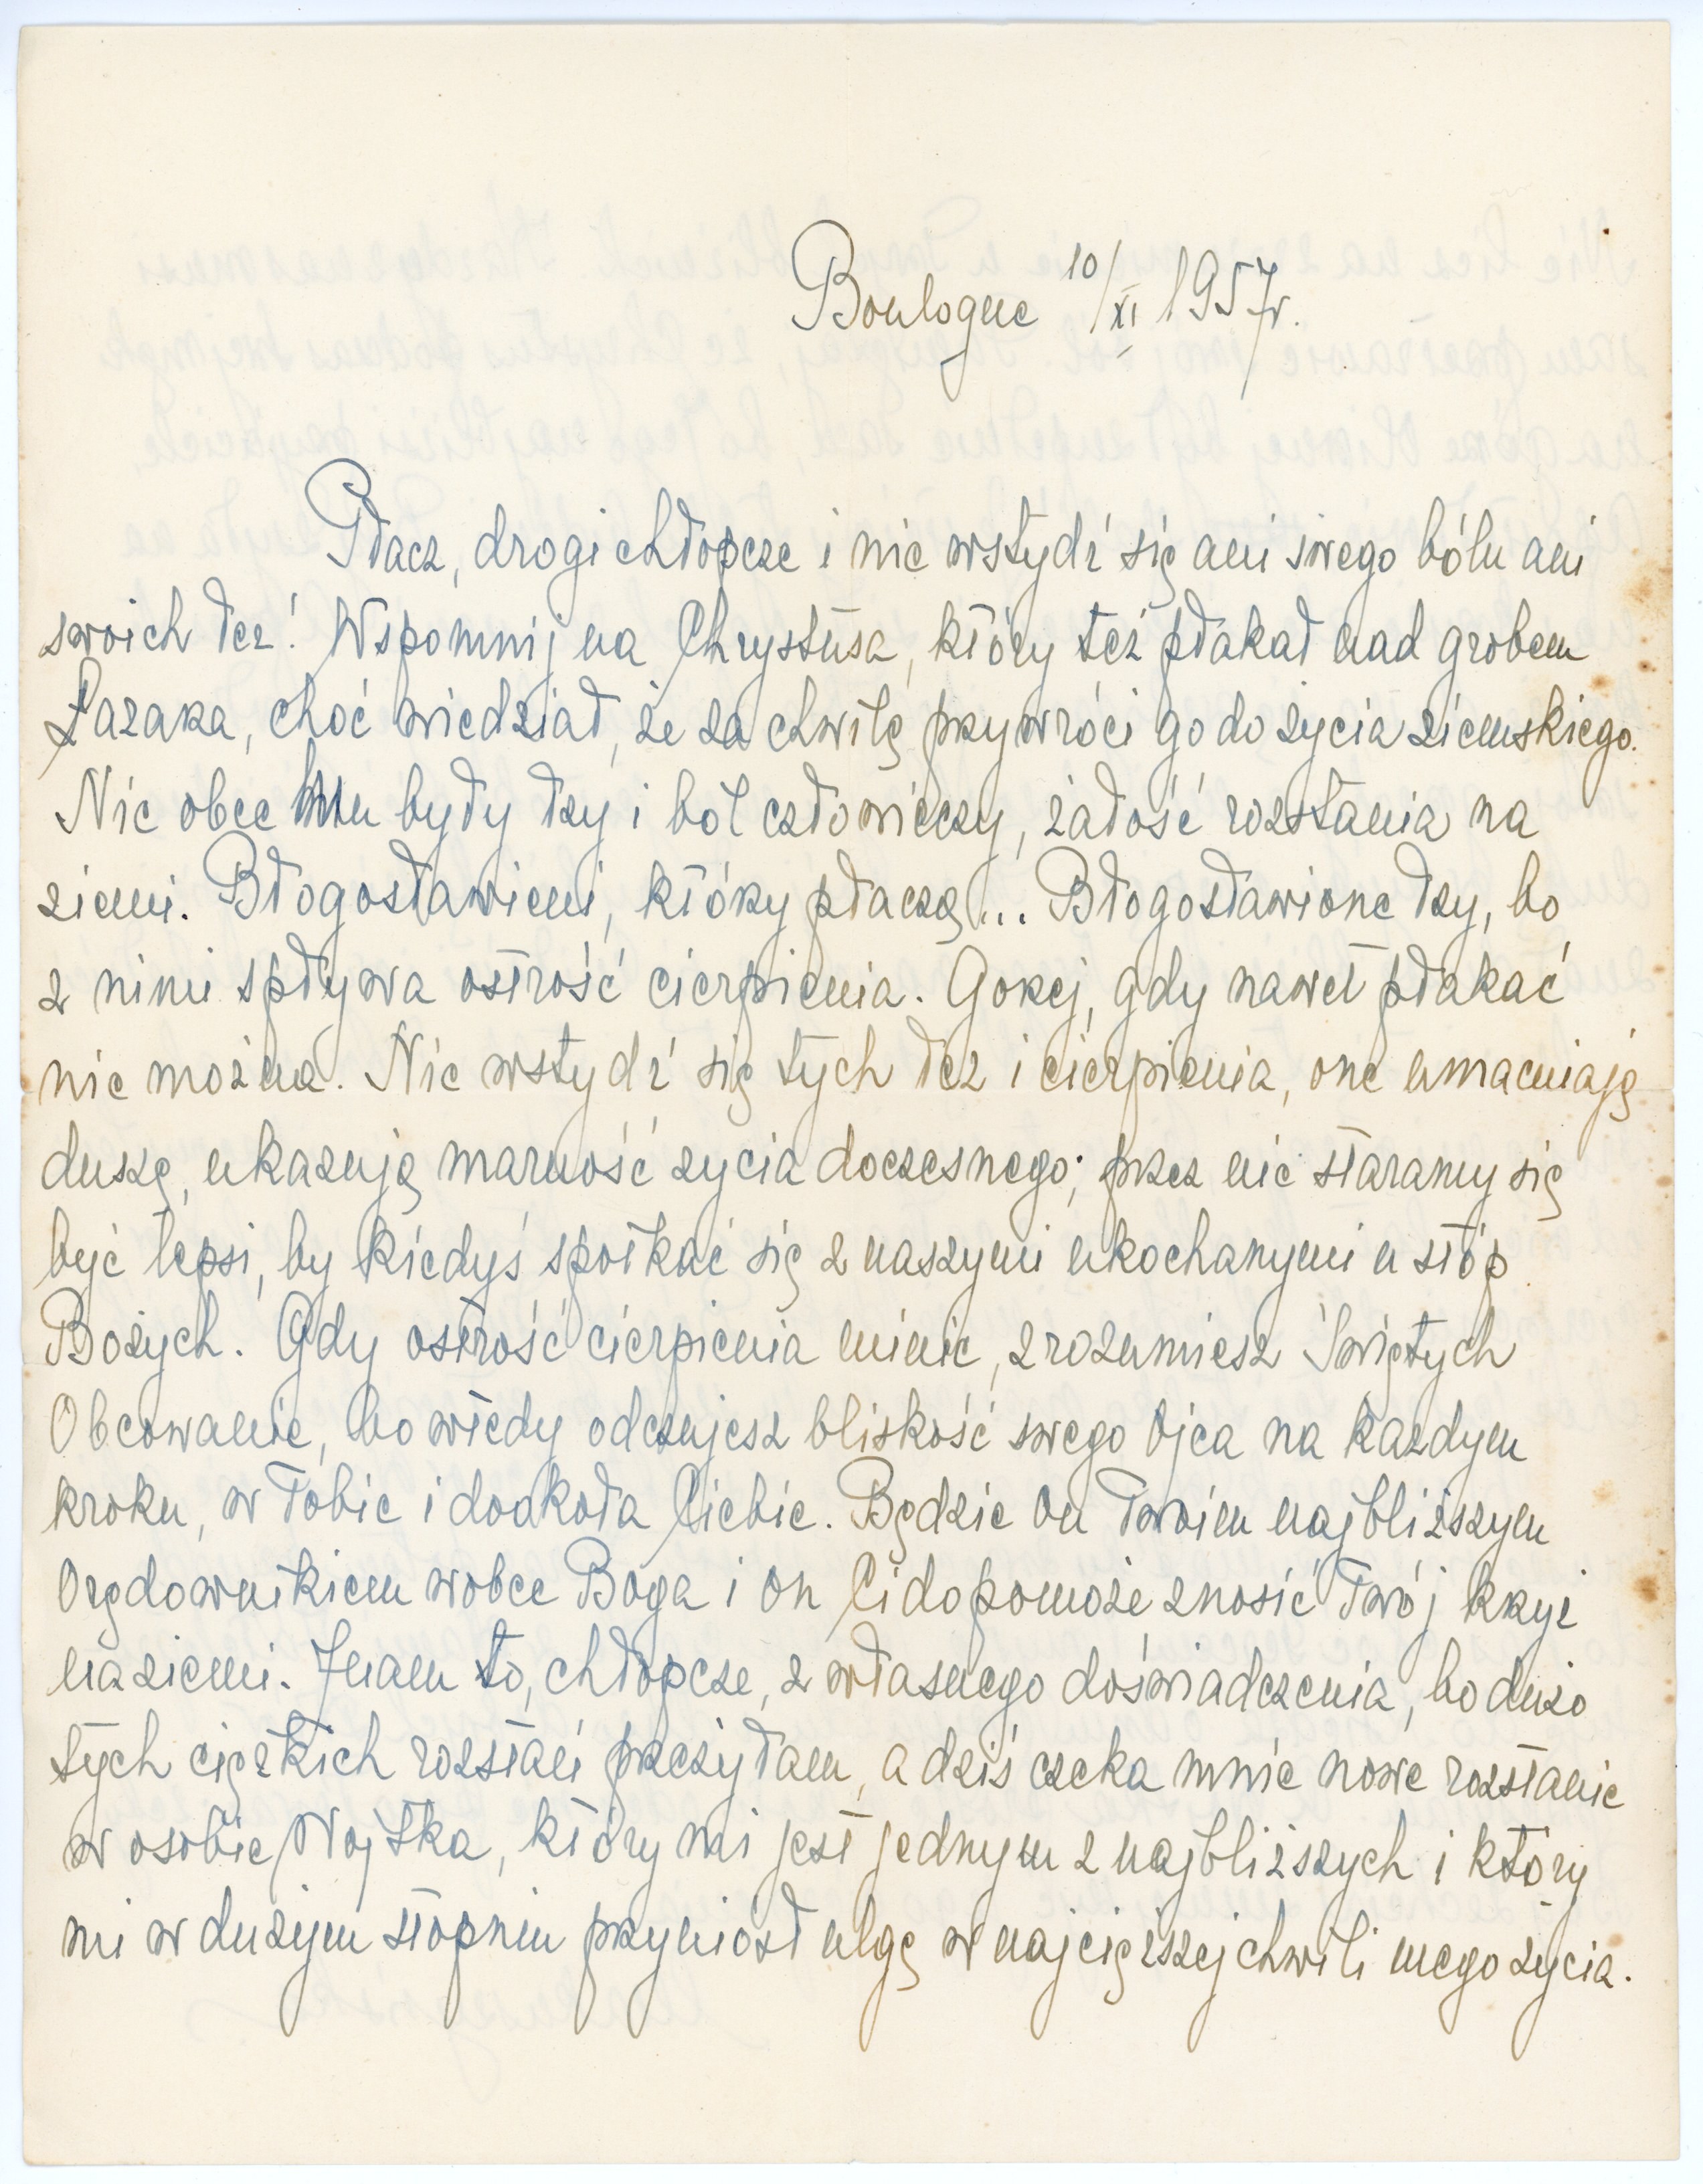 Boulogne 10/XI 1957r.
Płacz, drogi chłopcze i nie wstydź się ani swego bólu ani
swoich łez! Wspomnij na Chrystusa, który też płakał nad grobem
Łazarza, choć wiedział, że za chwilę przywróci go do życia ziemskiego.
Nie obce Mu były łzy i ból człowieczy, żałość rozstania na
ziemi. Błogosławieni, którzy płaczą... Błogosławione łzy, bo
z nimi spływa ostrość cierpienia. Gorzej, gdy nawet płakać
nie można. Nie wstydź się tych łez i cierpienia, one umacniają
duszę, ukazują marność życia doczesnego; przez nie staramy się
być lepsi, by kiedyś spotkać się z naszymi ukochanymi u stóp
Bożych. Gdy ostrość cierpienia minie, zrozumiesz Świętych
Obcowanie, bo wtedy odczujesz bliskość swego Ojca na każdym
kroku, w Tobie i dookoła Ciebie. Będzie On Twoim najbliższym
Orędownikiem wobec Boga i On Ci dopomoże znosić Twój krzyż
na ziemi. Znam to, chłopcze, z własnego doświadczenia, bo dużo
tych ciężkich rozstań przeżyłam, a dziś czeka mnie nowe rozstanie
w osobie Wojtka, który mi jest jednym z najbliższych i który
mi w dużym stopniu przyniósł ulgę w najcięższej chwili mego życia.